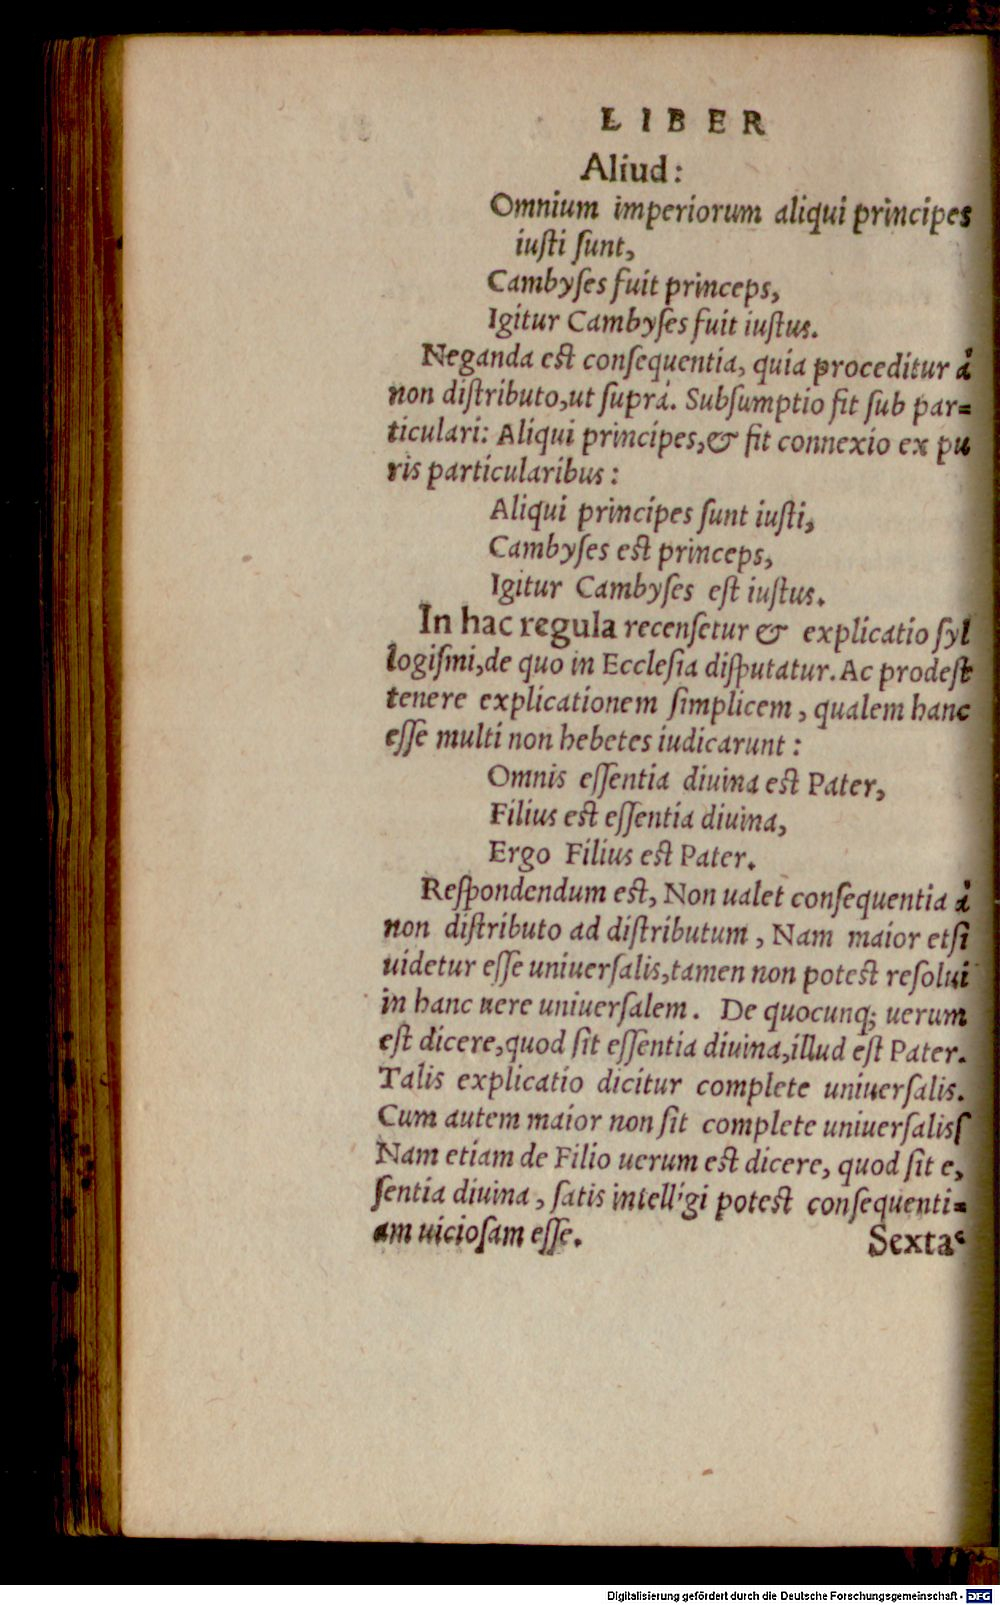 LIBER
Aliud:
Omnium imperiorum aliqui principes
iuſti ſunt,
Cambyſes fuit princeps,
Igitur Cambyſes fuit iuſtus.
Neganda eſt conſequentia, quia proceditur à
non diſtributo,ut ſuprà. Subſumptio fit ſub par=
ticulari: Aliqui principes,& fit connexio ex pu
ris particularibus:
Aliqui principes ſunt iuſti,
Cambyſes eſt princeps,
Igitur Cambyſes eſt iuſtus.
In hac regula recenſetur & explicatio ſyl
logiſmi,de quo in Eccleſia diſputatur. Ac prodeſt
tenere explicationem ſimplicem, qualem hanc
eſſe multi non hebetes iudicarunt:
Omnis eſſentia diuina eſt Pater,
Filius eſt eſſentia diuina,
Ergo Filius eſt Pater.
Reſpondendum eſt, Non ualet conſequentia à
non diſtributo ad diſtributum, Nam maior etſi
uidetur eſſe uniuerſalis,tamen non poteſt reſolui
in hanc uere uniuerſalem. De quocunq; uerum
eſt dicere,quod ſit eſſentia diuina,illud eſt Pater.
Talis explicatio dicitur complete uniuerſalis.
Cum autem maior non ſit complete uniuerſalisſ
Nam etiam de Filio uerum eſt dicere, quod ſit e,
ſentia diuina, ſatis intelligi poteſt conſequenti=
am uicioſam eſſe.
Sexta
Digitalisierung gefördert durch die Deutsche Forschungsgemeinschaft - DFG